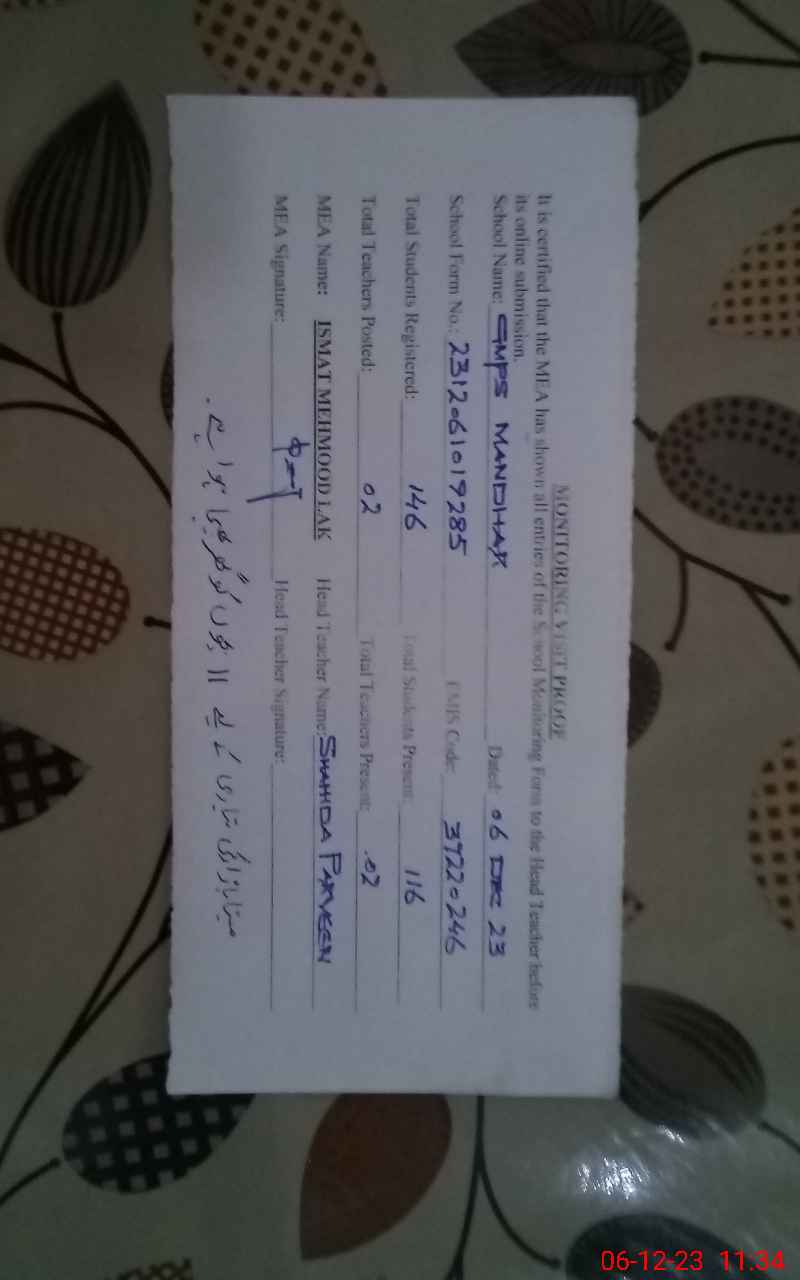 MONITORING VISIT PROOF
It is certified that the MEA has shown all entries of the School Monitoring Form to the Head Teacher before
its online submission.
School Name: GMPS MANDHAR Dated: 06 DEC 23
School Form No.: 2312061019285 EMIS Code: 37220246
Total Students Registered: 146 Total Students Present: 116
Total Teachers Posted: 02 Total Teachers Present: .02
MEA Name: ISMAT MEHMOOD LAK Head Teacher Name: SHAHIDA PARVEEN
MEA Signature: Head Teacher Signature:
مینا بازار کی تیاری کے لیے 11 بچوں کو گھر بھیجا ہوا ہے۔
06-12-23 11:34